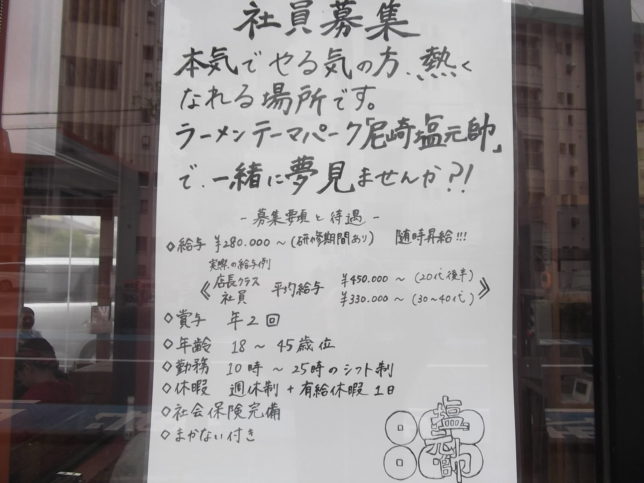 社員募集
本気でやる気の方、熱く
なれる場所です。
ラーメンテーマパーク「尼崎塩元帥」
で、一緒に夢見ませんか?!
- 募集要項と待遇 -
◇給与 ¥280.000〜(研修期間あり) 随時昇給!!!
実際の給与例
《店長クラス 平均給与 ¥450.000〜(20代後半)
社員 ¥330.000〜(30〜40代)》
◇賞与 年2回
◇年齢 18〜45歳位
◇勤務 10時〜25時のシフト制
◇休暇 週休制+有給休暇1日
◇社会保険完備
◇まかない付き
塩元帥